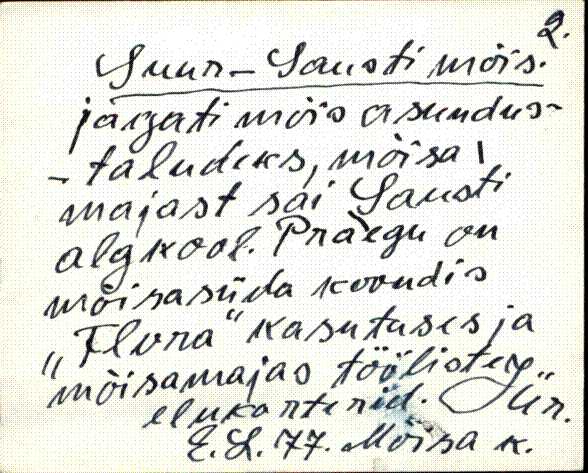 2.
Suur-Sausti mõis.
jagati mõis asundus-
-taludeks, mõisa
majast sai Sausti
algkool. Praegu on
mõisasüda koondis
„Flora" kasutuses ja
mõisamajas tööliste
elukorterid. Jür.
E.L. 77. Mõisa k.